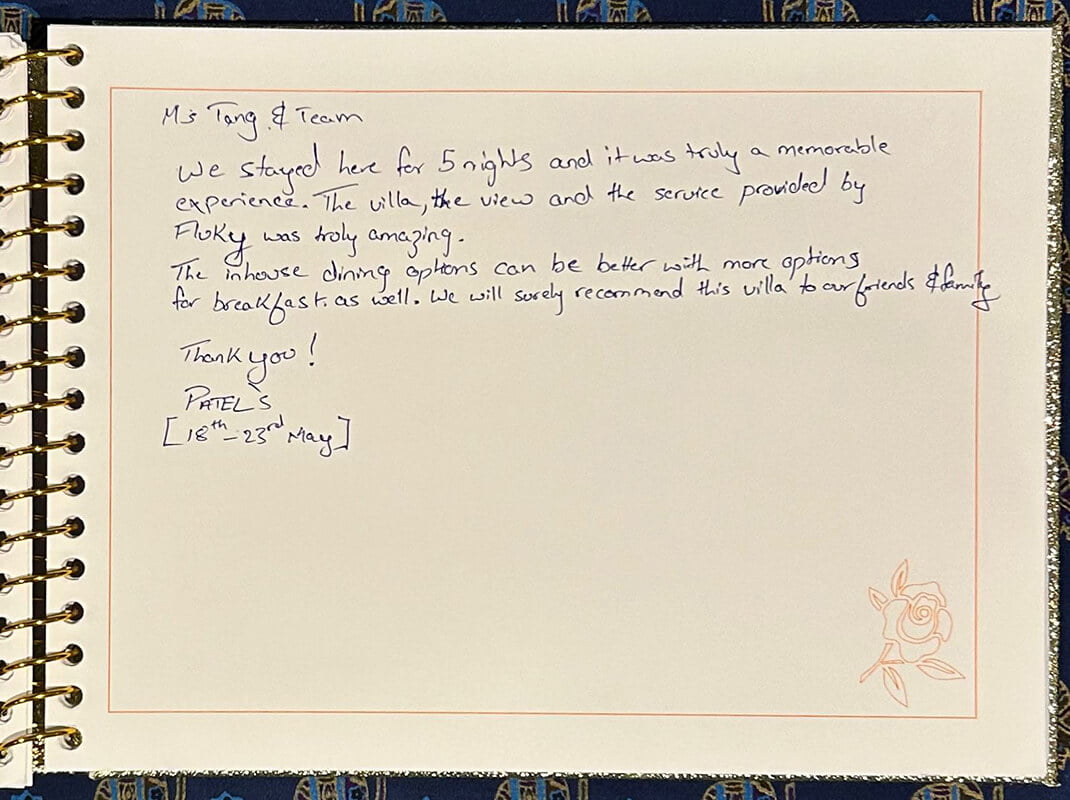 Ms Tang & Team
We stayed here for 5 nights and it was truly a memorable
experience. The villa, the view and the service provided by
Fluky was truly amazing.
The inhouse dining options can be better with more options
for breakfast. as well. We will surely recommend this villa to our friends & family
Thank you!
PATEL'S
[18th - 23rd May]